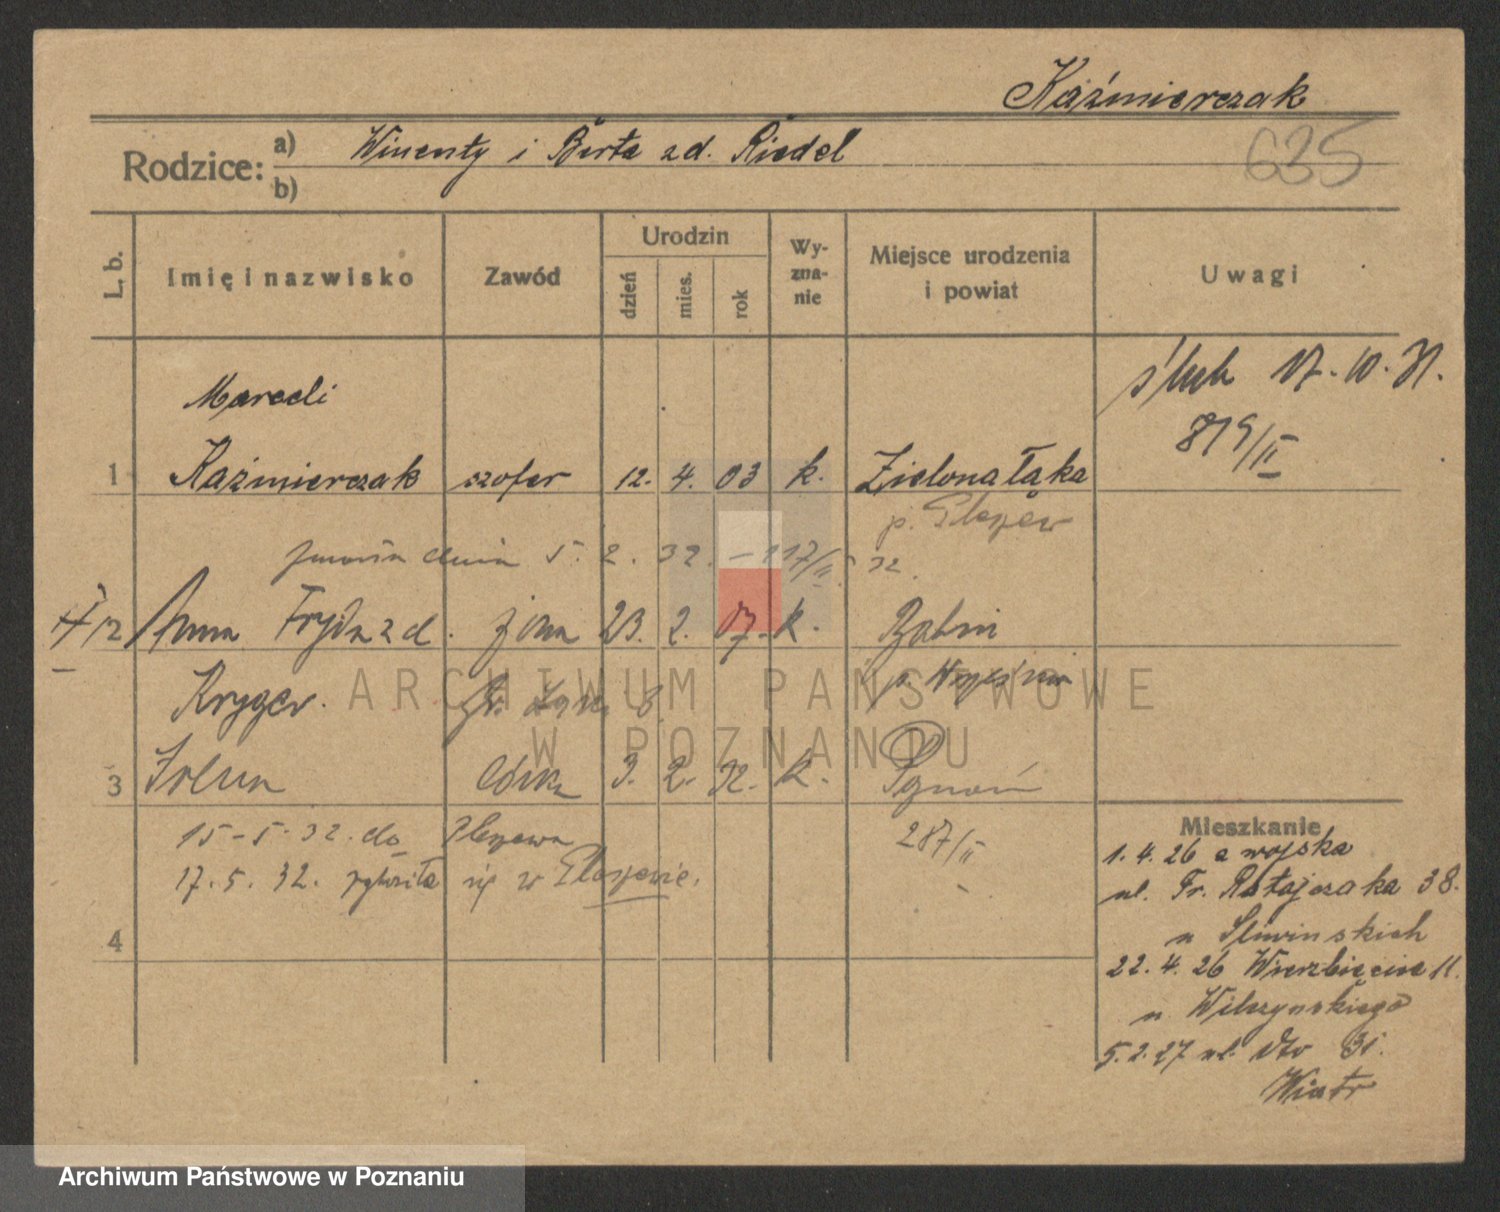 Kaźmierczak
635
Rodzice:
a) Wincenty i Berta z d. Riedel
b)
L. b.
Imię i nazwisko
Zawód
Urodzin
dzień
mies.
rok
Wy-
zna-
nie
Miejsce urodzenia
i powiat
Uwagi
ślub 17. 10. 31.
819/II
Marceli
1 Kaźmierczak szofer 12. 4. 03 k. Zielonałąka
p. Pleszew
zmarła dnia 5. 2. 32. – 117/II 32.
2 Anna Fryda z d. żona 23. 2. 07. k.
Kryger. p. Września
3 córka 3. 2. 32. k. Poznań
15-5-32. do Pleszewa 287/II
17. 5. 32. zgłosiła się w Pleszewie.
4
Mieszkanie
1. 4. 26 z wojska
ul. Fr. Ratajczaka 38.
u Śliwinskich
22. 4. 26 Wierzbięcice 11.
u Wilczynskiego
5. 2. 27 ul. dto 31.
Wiatr
ARCHIWUM PAŃSTWOWE
W POZNANIU
Archiwum Państwowe w Poznaniu